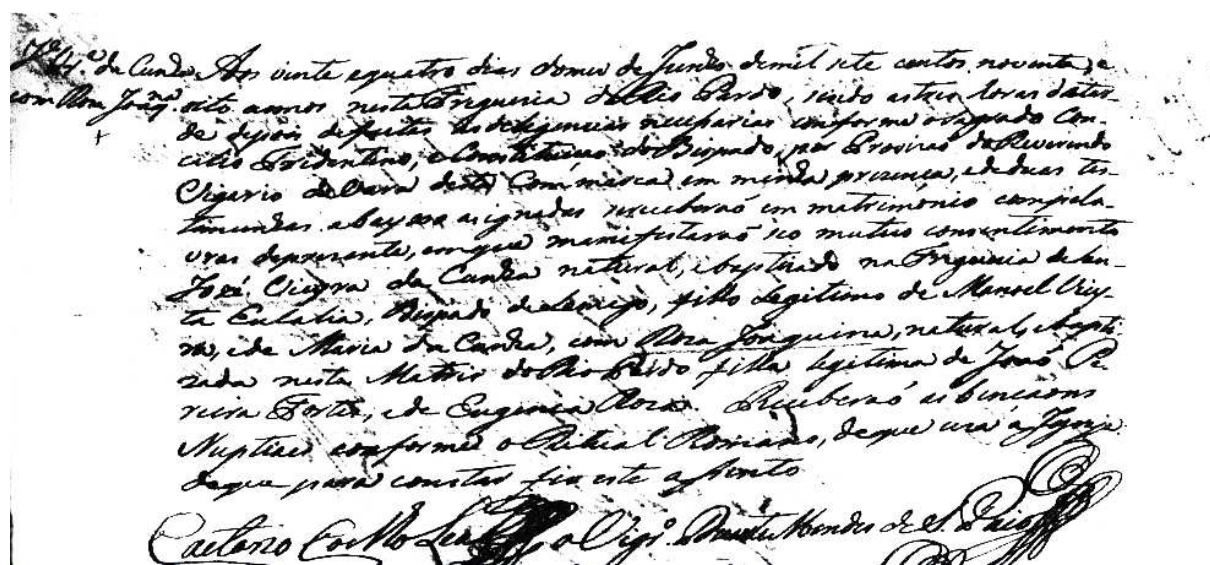 Jᵉ Vᵃ da Cunha Aos vinte e quatro dias do mes de Junho de mil sete centos noventa, e
com Roza Joaqⁿᵃ oito annos nesta Freguezia do Rio Pardo, sendo as tres horas da tar-
de depois de feitas as deligencias necessarias conforme o sagrado Con-
cilio Tridentino, e Constituiçao do Bispado, por Provizao do Reverendo
Vigario da Vara desta Commarca em minha prezença, e de duas tes-
timunhas abayxo asignadas se receberaõ em matrimonio com pala-
vras de prezente, em que manifestaraõ seo mutuo consentimento
José Vieyra da Cunha natural, e baptizado na Freguezia de San-
ta Eulalia, Bispado de Lamego, filho legitimo de Manoel Viey-
ra, e de Maria da Cunha, com Roza Joaquina, natural, e bapti-
zada nesta Matriz do Rio Pardo filha legitima de Joaõ Pe-
reira Fortes, e de Eugenia Roza. Receberaõ as bençaons
Nupciaes conforme o Ritual Romano, de que uza a Igreja
de que para constar fiz este assento
Caetano Coelho Leal o Vigrᵒ Mendes de S. Paio